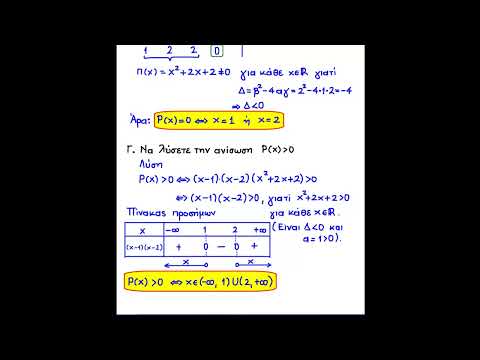 1 2 2 0
Π(x) = x²+2x+2≠0 για κάθε x∈ℝ γιατί
Δ=β²-4αγ=2²-4·1·2=-4
⇒ Δ<0
Άρα: P(x)=0 ⇔ x=1 ή x=2
Γ. Να λύσετε την ανίσωση P(x)>0
Λύση
P(x)>0 ⇔ (x-1)·(x-2)(x²+2x+2)>0
⇔ (x-1)(x-2)>0, γιατί x²+2x+2>0
Πίνακας προσήμων για κάθε x∈ℝ.
(Είναι Δ<0 και
α=1>0).
x -∞ 1 2 +∞
(x-1)(x-2) + 0 - 0 +
x x
P(x)>0 ⇔ x∈(-∞, 1)∪(2,+∞)